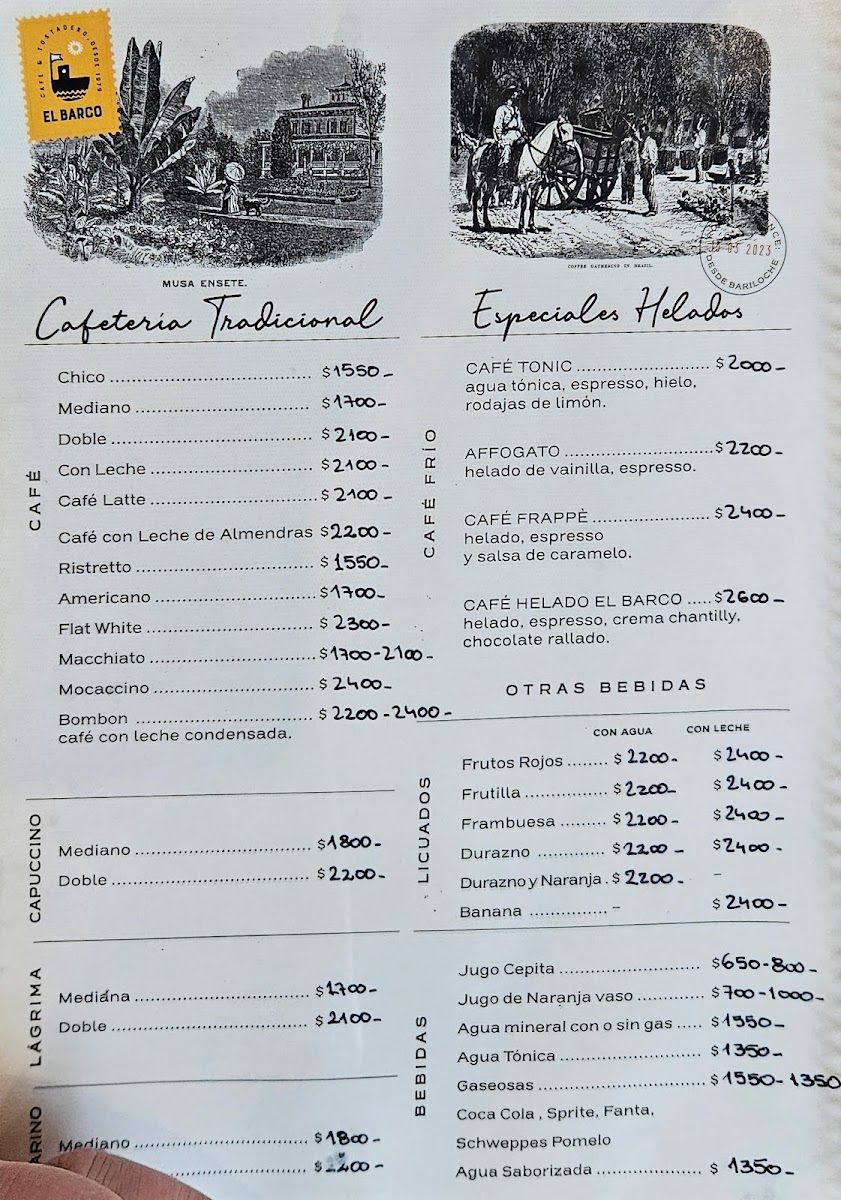 CAFÉ & TOSTADERO, DESDE 1979
EL BARCO
MUSA ENSETE.
COFFEE GATHERING IN BRAZIL.
2023
DESDE BARILOCHE
Cafetería Tradicional
CAFÉ
Chico ........ $1550-
Mediano ........ $1700-
Doble ........ $2100-
Con Leche ........ $2100-
Café Latte ........ $2100-
Café con Leche de Almendras $2200-
Ristretto ........ $1550-
Americano ........ $1700-
Flat White ........ $2300-
Macchiato ........ $1700-2100-
Mocaccino ........ $2400-
Bombon ........ $2200-2400-
café con leche condensada.
CAPUCCINO
Mediano ........ $1800-
Doble ........ $2200-
LÁGRIMA
Mediana ........ $1700-
Doble ........ $2100-
ARINO
Mediano ........ $1800-
Especiales Helados
CAFÉ FRÍO
CAFÉ TONIC ........ $2000-
agua tónica, espresso, hielo,
rodajas de limón.
AFFOGATO ........ $2200-
helado de vainilla, espresso.
CAFÉ FRAPPÈ ........ $2400-
helado, espresso
y salsa de caramelo.
CAFÉ HELADO EL BARCO ..... $2600-
helado, espresso, crema chantilly,
chocolate rallado.
OTRAS BEBIDAS
CON AGUA CON LECHE
LICUADOS
Frutos Rojos ........ $2200- $2400-
Frutilla ........ $2200- $2400-
Frambuesa ........ $2200- $2400-
Durazno ........ $2200- $2400-
Durazno y Naranja . $2200- -
Banana ........ - $2400-
BEBIDAS
Jugo Cepita ........ $650-800-
Jugo de Naranja vaso ........ $700-1000-
Agua mineral con o sin gas ..... $1550-
Agua Tónica ........ $1350-
Gaseosas ........ $1550-1350
Coca Cola , Sprite, Fanta,
Schweppes Pomelo
Agua Saborizada ........ $1350-